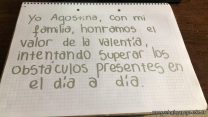 Yo Agostina, con mi
familia, honramos el
valor de la valentía,
intentando superar los
obstáculos presentes en
el día a día.